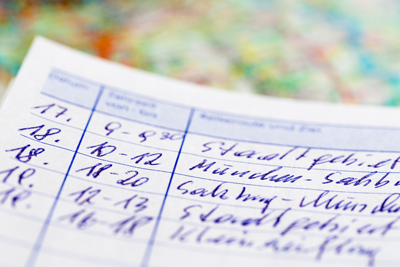 Datum Zeitraum von - bis Reiseroute und Ziel
17. 9 - 9³⁰ Stadtgebiet
18. 10 - 12 München - Salzbu
18. 18 - 20 Salzburg - Münche
19. 12 - 13 Stadtgebiet
19. 16 - 18